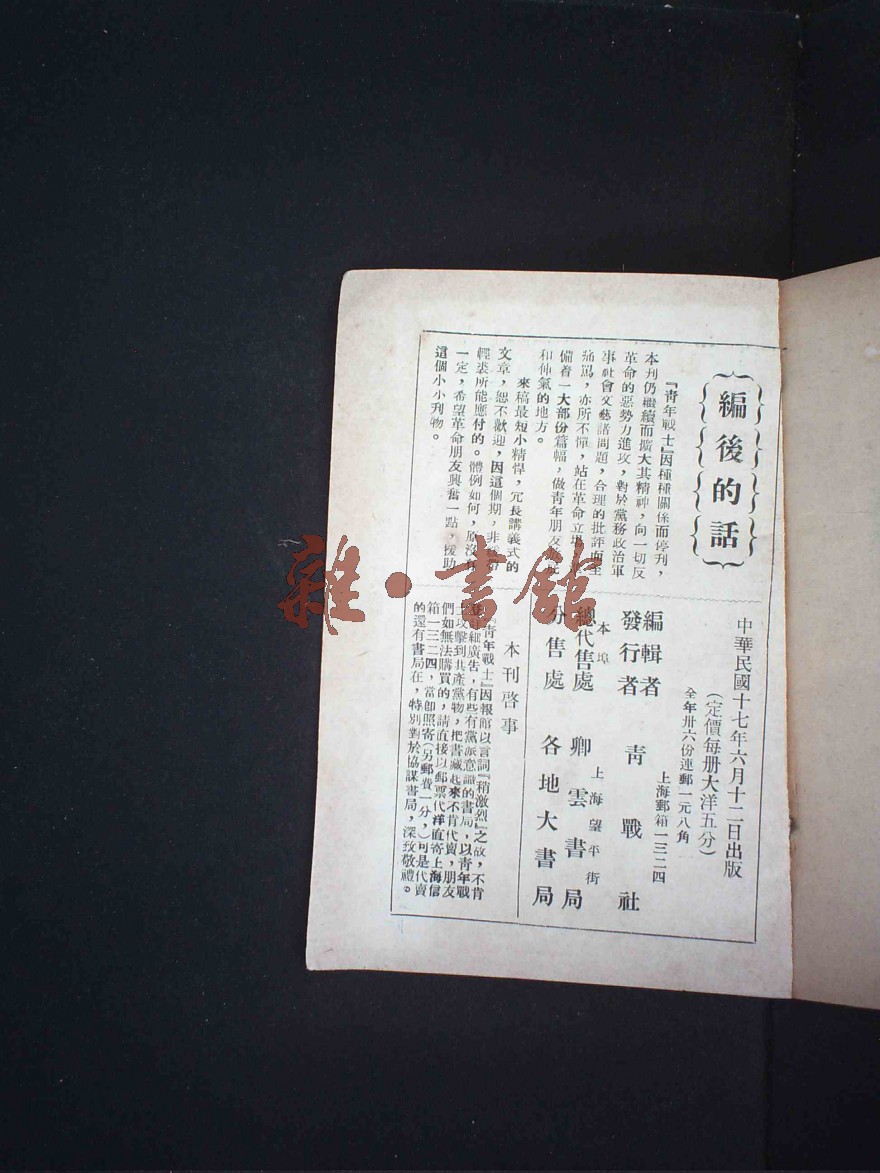 編後的話
『靑年戰士』因種種關係而停刊，
本刊仍繼續而擴大其精神，向一切反
革命的惡勢力進攻，對於黨務政治軍
事社會文藝諸問題，合理的批評而至
痛罵，亦所不憚，站在革命立場
備着一大部份篇幅，做靑年朋友
和伸氣的地方。
來稿最短小精悍，冗長講義式的
文章，恕不歡迎，因這個期，非
輕裘所能應付的。體例如何，原沒
一定，希望革命朋友興奮一點，援助
這個小小刊物。
中華民國十七年六月十二日出版
（定價每册大洋五分）
全年卅六份連郵一元八角
上海郵箱一三二四
編輯者
發行者
靑戰社
本埠
總代售處
上海望平街
卿雲書局
分售處 各地大書局
本刊啓事
『靑年戰士』因報館以言詞『稍激烈』之故，不肯
廣告，有些有黨派意識的書局，以靑年戰
士攻擊到共產黨物，把書藏起來不肯代賣，朋友
們如無法購買的，請直接以郵票代洋直寄上海信
箱一三二四，當卽照寄（另郵費一分，）可是代賣
的還有書局在，特別對於協謀書局，深致敬禮。
雜·書館